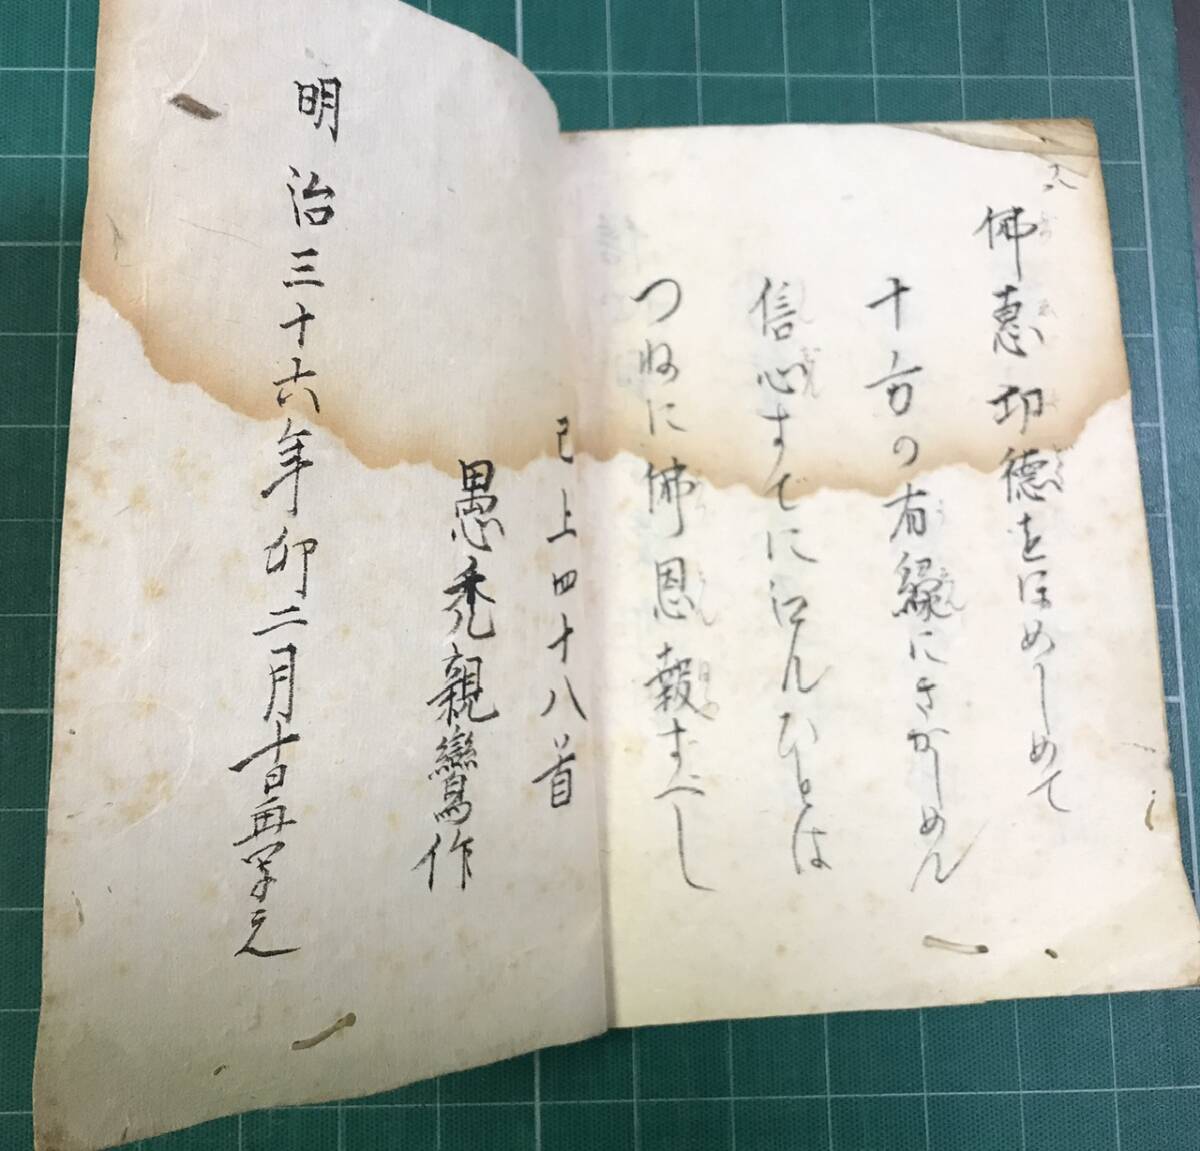 佛惠功德をほめしめて
十方の有縁にきかしめん
信心すでにえんひとは
つねに佛恩報すべし
已上四十八首
愚禿親鸞作
明治三十六年卯二月十日再